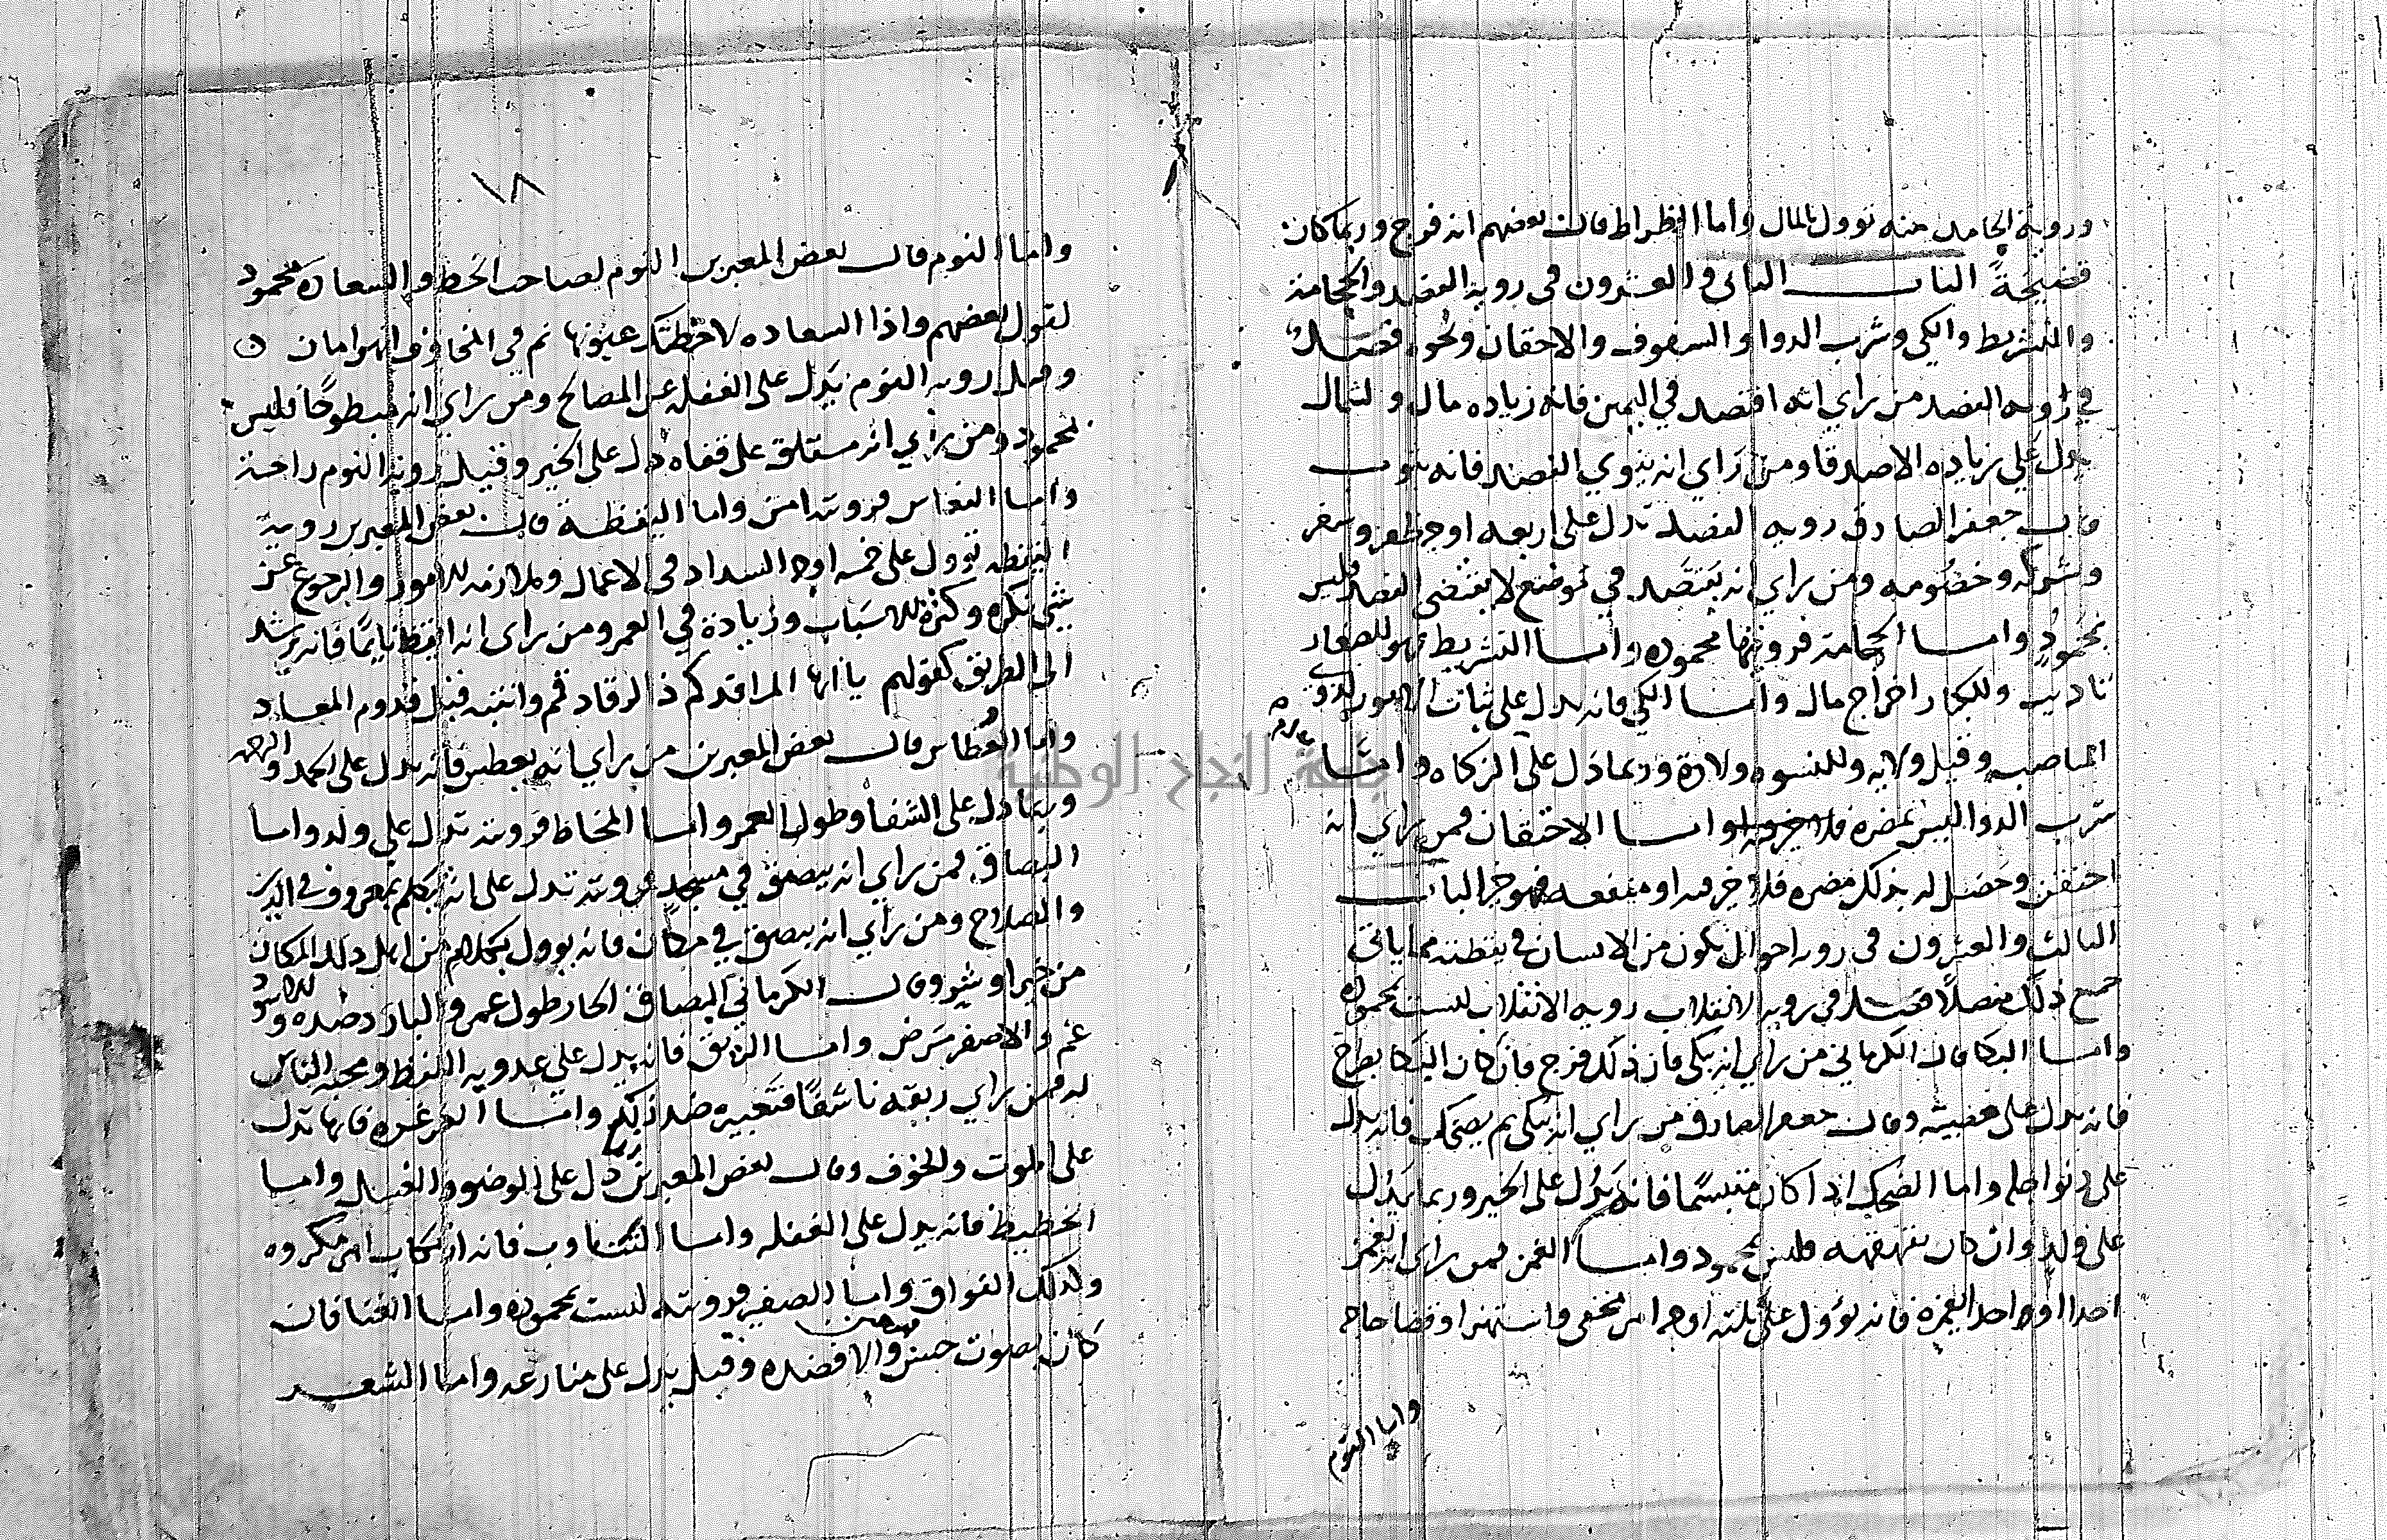 وروية الجامد منه توول بالمال وأما الظراط قال بعضهم انه فرج وربما كان
فضيحة الباب الثاني والعشرون في روية الفصد والحجامة
والتشريط والكي وشرب الدوا والسفوف والاحقان ونحوه فصل
في روية الفصد من راي انه افتصد في اليمين فانه زياده مال والشمال
يدل علي زياده الاصدقا ومن راي انه ينوي الفصد فانه يتوب
قال جعفر الصادق روية الفصد تدل على اربعه اوجه ظفر وسفر
وشركه وخصومه ومن راي انه يفتصد في موضع لا يقتضي الفصد فليس
بمحمود واما الحجامة فرويتها محموده واما التشريط فهو للصغار
تاديب وللكبار اخراج مال واما الكي فانه يدل علي ثبات الامور لذوي
المناصب وقيل ولايه وللنسوه ولادة وربما دل على الزكاه واما
شرب الدوا ليس بمضره فلا خير فيه واما الاحتقان فمن راي انه
احتقن وحصل له بذلك مضره فلا خير فيه او منفعه فهو خير الباب
الثالث والعشرون في روية احوال تكون من الانسان في يقظته مما ياتي
جميع ذلك مفصلا فصل في روية الانقلاب روية الانقلاب ليست بمحموده
واما البكا قال الكرماني من راي انه يبكي فان ذلك فرج فان كان البكا بصراخ
فانه يدل على مصيبة وقال جعفر الصادق من راي انه يبكي ثم يضحك فانه يدل
على دنو اجله واما الضحك اذا كان متبسما فانه يدل على الخير وربما يدل
على ولد وان كان بقهقهه فليس بمحمود واما الغمز فمن راي انه يغمز
احدا او احد يغمزه فانه يؤول على ثلثة اوجه امر مخفي واستهزا وقضا حاجه
واما النوم
١٨
واما النوم قال بعض المعبرين النوم لصاحب الحظ والسعاده محمود
لقول بعضهم واذا السعاده لاحظتك عيونها نم في المخاوف انهن امان
وقيل روية النوم يدل على الغفلة عن المصالح ومن راي انه مبطوحا فليس
بمحمود ومن راي انه مستلق على قفاه دل على الخير وقيل روية النوم راحة
واما النعاس فرويته امن واما اليقظة قال بعض المعبرين روية
اليقظه توول على خمسه اوجه السداد في الاعمال وملازمه للامور والرجوع عن
شي نكره وكثرة للاسباب وزيادة في العمر ومن راى انه ايقظ نايما فانه يرشد
الى الطريق كقولهم يا ايها الراقد كم ذا الرقاد قم وانتبه قبل قدوم المعاد
واما العطاس قال بعض المعبرين من راي انه يعطس فانه يدل على الحمد والرحمه
وربما دل على الشفا وطول العمر واما المخاط فرويته تدل علي ولد واما
البصاق فمن راي انه يبصق في مسجد فرويته تدل على انه يتكلم بمعروف في الدين
والصلاح ومن راي انه يبصق في مكان فانه يوول بكلام من اهل ذلك المكان
من خير او شر وقال الكرماني البصاق الحار طول عمر والبارد ضده والاسود
غم والاصفر مرض واما الريق فانه يدل علي عذوبة اللفظ ومحبة الناس
له فمن راي ريقه ناشفا فتعبيره ضد ذلك واما الغرغره فانها تدل
على الموت والخوف وقال بعض المعبرين ربما دل على الوضو والغسل واما
الخطيط فانه يدل على الغفله واما التثاوب فانه ارتكاب امر مكروه
وكذلك الفواق واما الصفير فرويته ليست بمحموده واما الغنا فان
كان بصوت حسن والا فضده وقيل يدل على منازعه واما الشعر